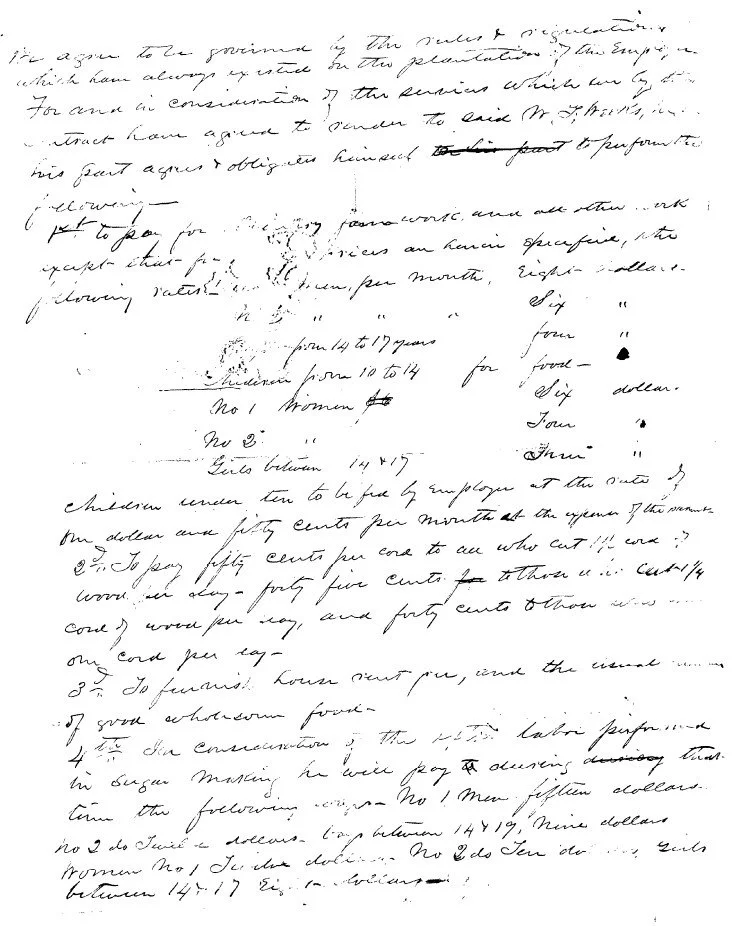 We agree to be governed by the rules & regulations
which have always existed on the plantation of the Employer
For and in consideration of the services which we by this
contract have agreed to render to said W. F. Weeks, he
his part agrees & obligates himself to his part to perform the
following—
1st. to pay for farm work, and all other work
except that services an herein specified, the
following rates: men, per month, Eight dollars.
No 2 " " " Six "
from 14 to 17 years four "
Children from 10 to 14 for food—
No 1 Women Six dollars.
No 2 " Four "
Girls between 14 & 17 Three "
Children under ten to be fed by Employer at the rate of
one dollar and fifty cents per month at the expense of the
2nd. To pay fifty cents per cord to all who cut 1½ cord of
wood per day— forty five cents for to those who cut 1¼
cord of wood per day, and forty cents to those who
one cord per day—
3d. To furnish house rent free, and the usual
of good wholesome food—
4th In consideration of the labor performed
in sugar making he will pay during during that
time the following wages— No 1 Men fifteen dollars.
No 2 do Twelve dollars— Boys between 14 & 19, Nine dollars
Women No 1 Twelve dollars— No 2 do Ten dollars, Girls
between 14 & 17 Eight dollars—